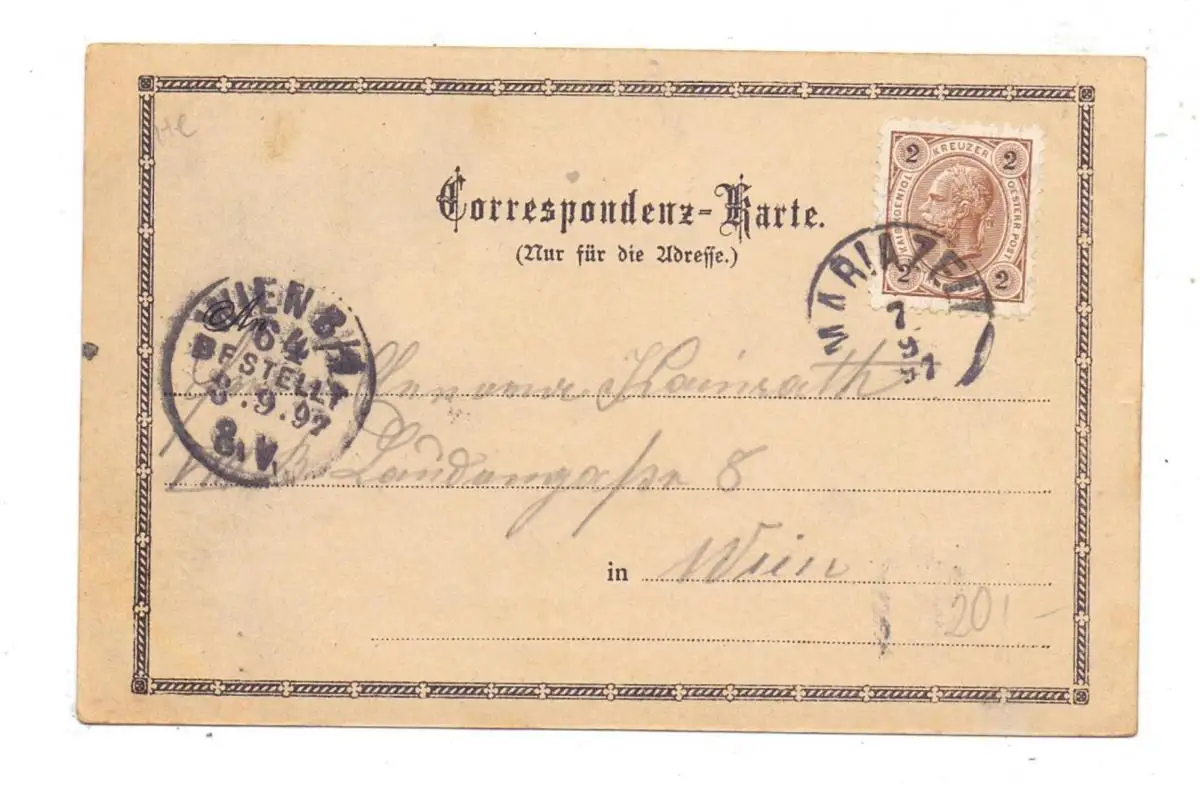 Correspondenz-Karte.
(Nur für die Adresse.)
2 KREUZER 2
KAIS. KOENIGL.
OESTERR. POST
2 2
MARIAZELL
7
9
97
WIEN 8/1
64
BESTELLT
8.9.97
8.V.
An
Hainrath
Laudongaße 8
in Wien
20